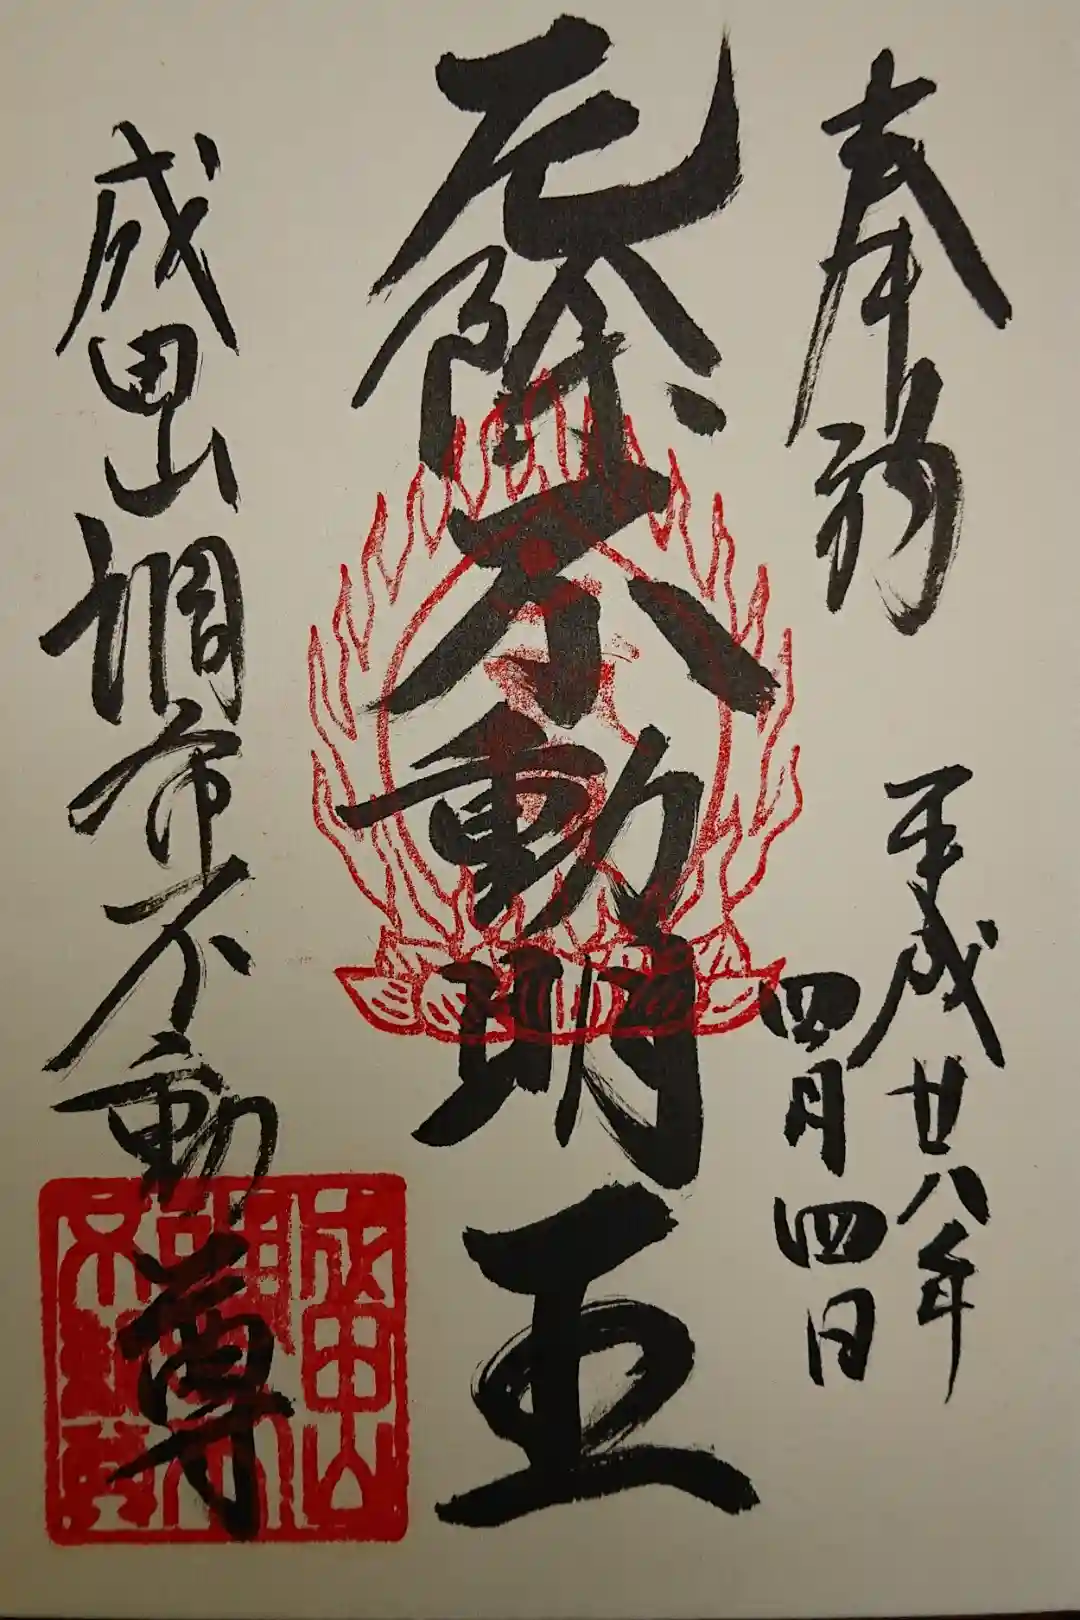 奉拝
平成廿八年
四月四日
厄除不動明王
成田山調布不動尊
成田山
調布
不動尊